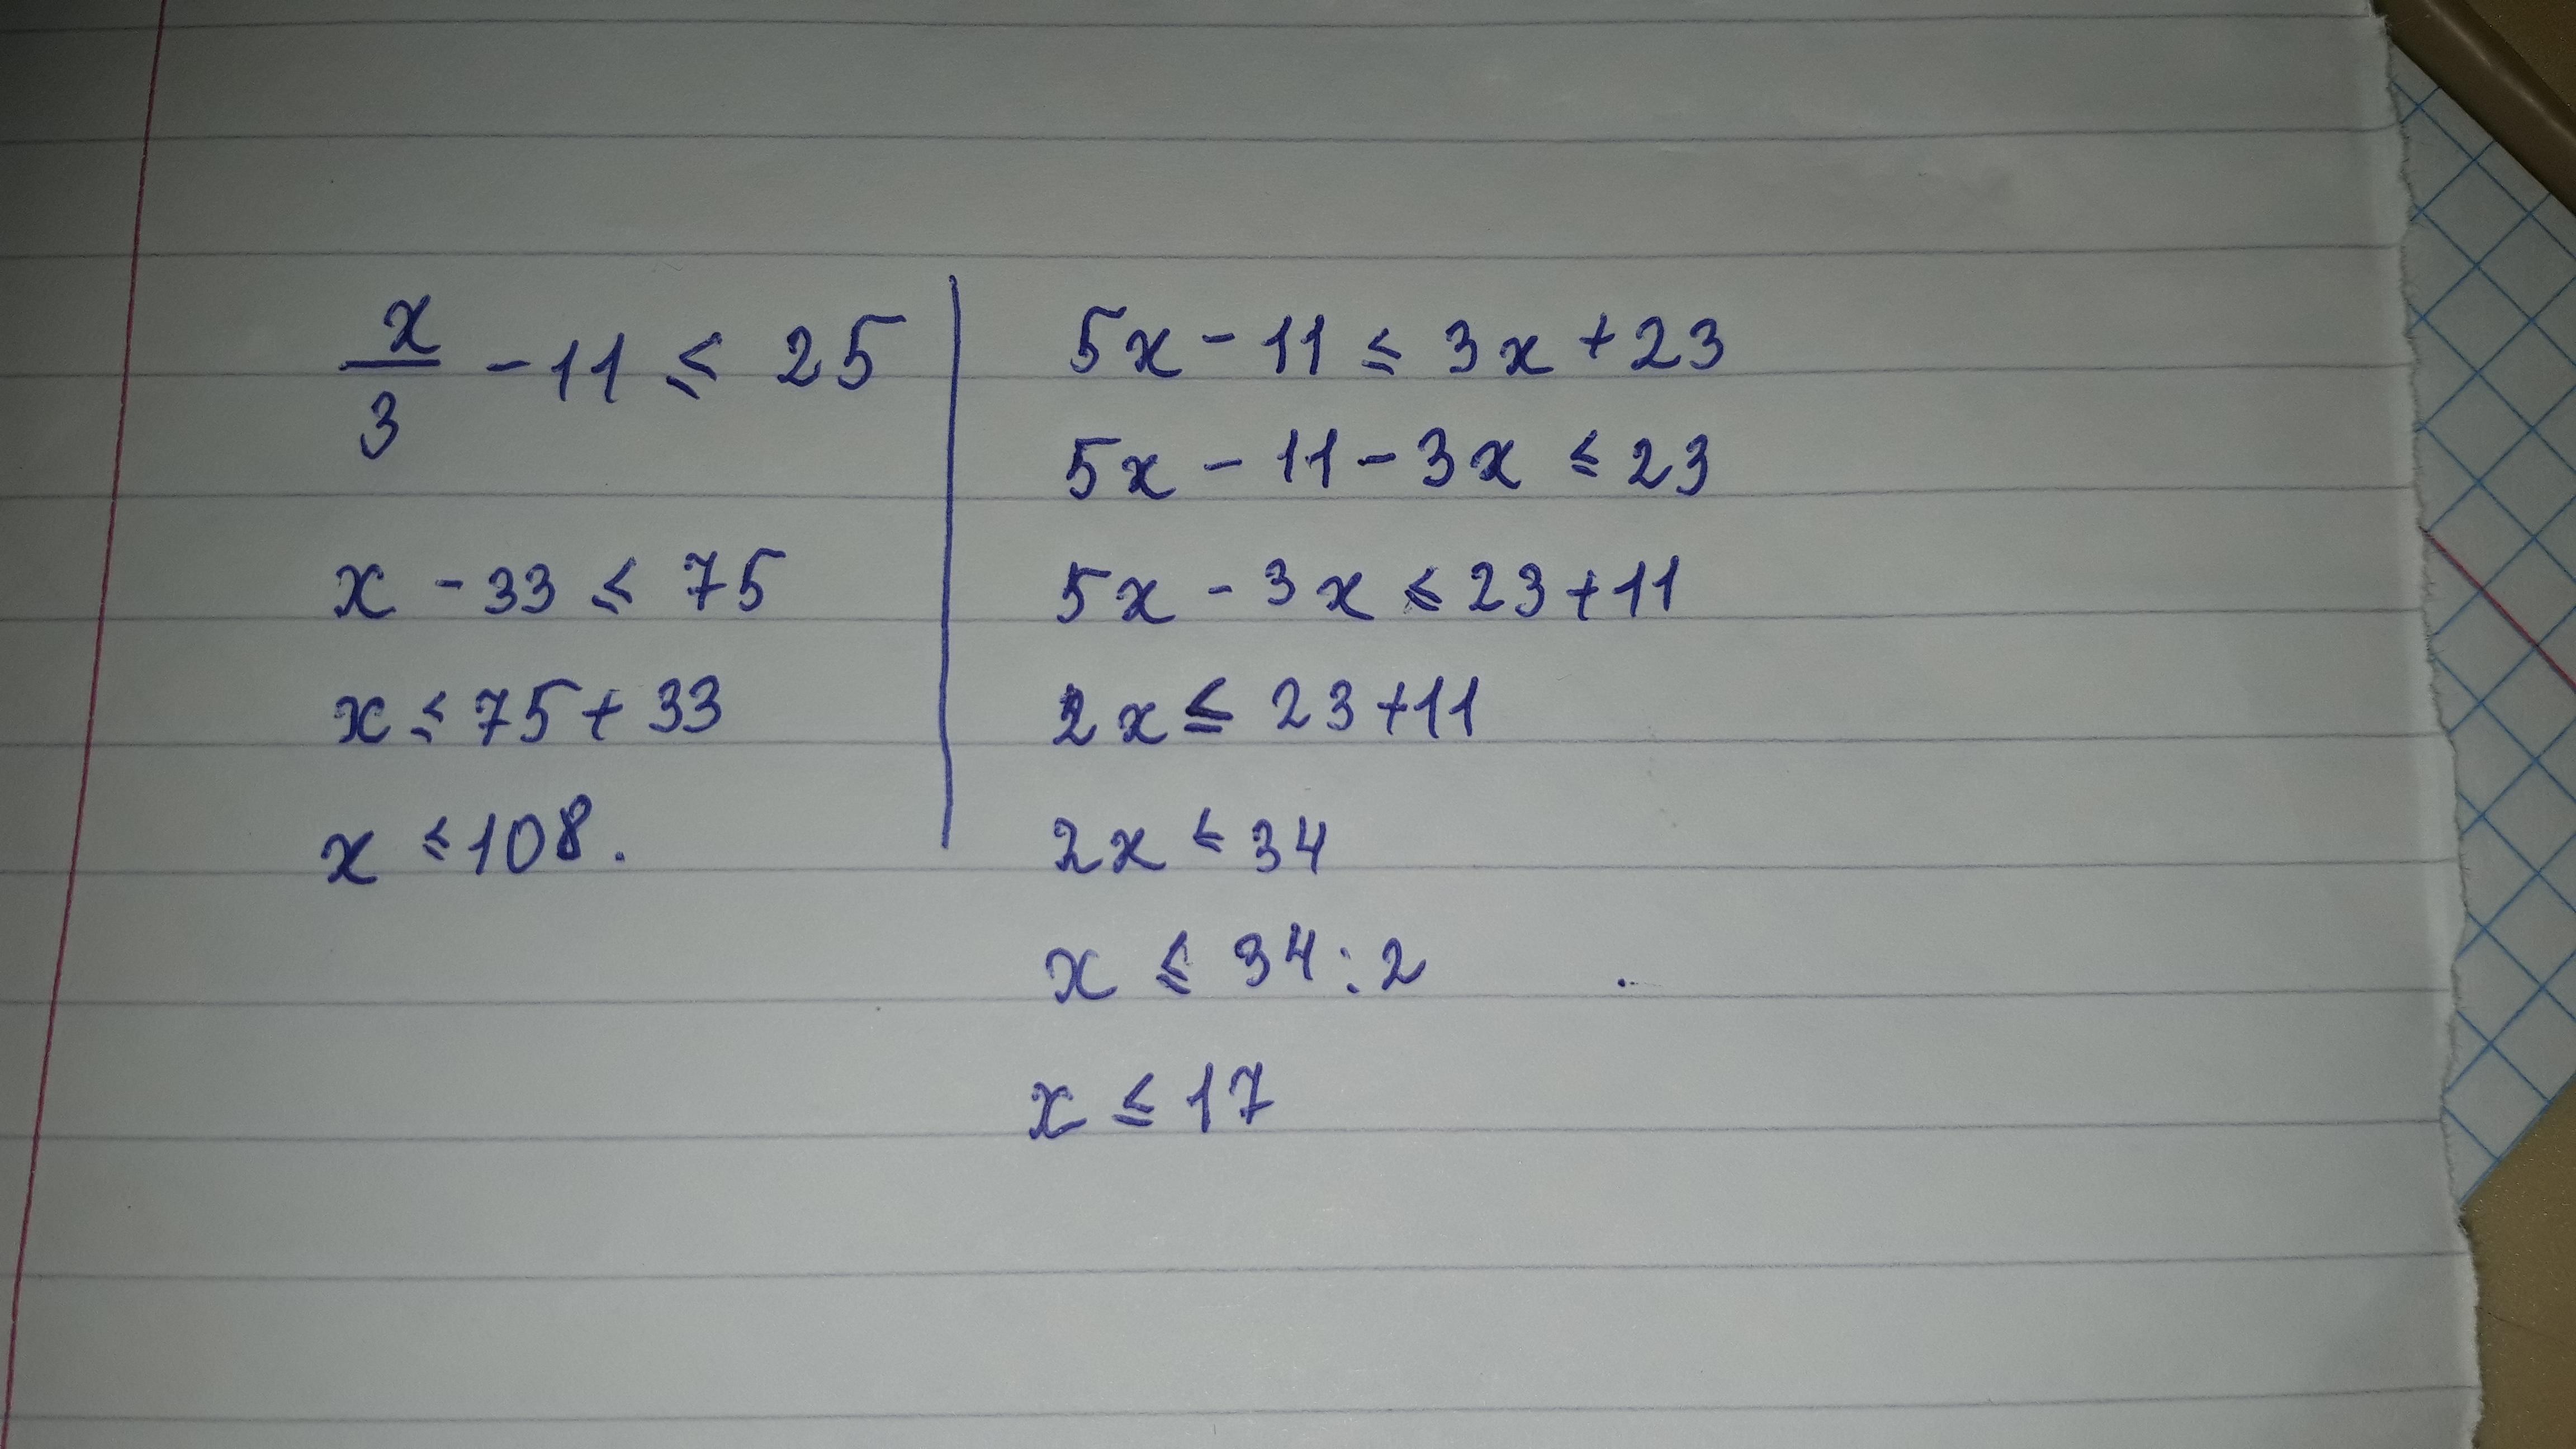 x/3 - 11 ≤ 25
x - 33 ≤ 75
x ≤ 75 + 33
x ≤ 108.
5x - 11 ≤ 3x + 23
5x - 11 - 3x ≤ 23
5x - 3x ≤ 23 + 11
2x ≤ 23 + 11
2x ≤ 34
x ≤ 34 : 2
x ≤ 17